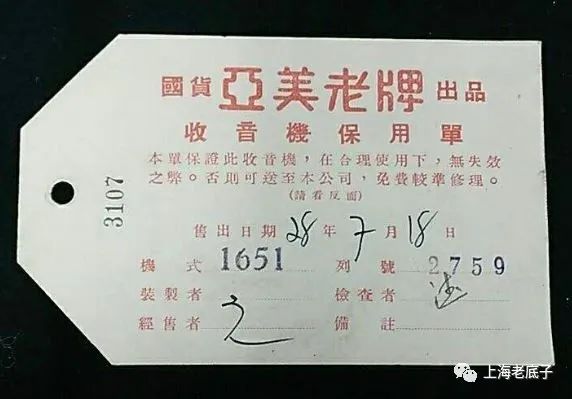 國貨 亞美老牌 出品
收音機保用單
本單保證此收音機，在合理使用下，無失效
之弊。否則可送至本公司，免費較準修理。
(請看反面)
3107
售出日期 28 年 7 月 18 日
機式 1651 列號 2759
裝製者 檢查者
經售者 備註
上海老底子